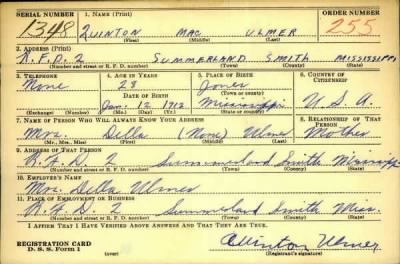 SERIAL NUMBER 1. NAME (Print) ORDER NUMBER
1348 QUINTON MAC ULMER 255
(First) (Middle) (Last)
2. ADDRESS (Print)
R.F.D. 2 SUMMERLAND SMITH MISSISSIPPI
(Number and street or R. F. D. number) (Town) (County) (State)
3. TELEPHONE 4. AGE IN YEARS 5. PLACE OF BIRTH 6. COUNTRY OF CITIZENSHIP
None 28 Jones
DATE OF BIRTH (Town or county)
Jan. 12 1912 Mississippi U.S.A.
(Exchange) (Number) (Mo.) (Day) (Yr.) (State or country)
7. NAME OF PERSON WHO WILL ALWAYS KNOW YOUR ADDRESS 8. RELATIONSHIP OF THAT PERSON
Mrs. Della (None) Ulmer Mother
(Mr., Mrs., Miss) (First) (Middle) (Last)
9. ADDRESS OF THAT PERSON
R.F.D. 2 Summerland Smith Mississippi
(Number and street or R. F. D. number) (Town) (County) (State)
10. EMPLOYER'S NAME
Mrs. Della Ulmer
11. PLACE OF EMPLOYMENT OR BUSINESS
R.F.D. 2 Summerland Smith Miss.
(Number and street or R. F. D. number) (Town) (County) (State)
I AFFIRM THAT I HAVE VERIFIED ABOVE ANSWERS AND THAT THEY ARE TRUE.
REGISTRATION CARD
D. S. S. Form 1 (over) Quinton Ulmer
(Registrant's signature)